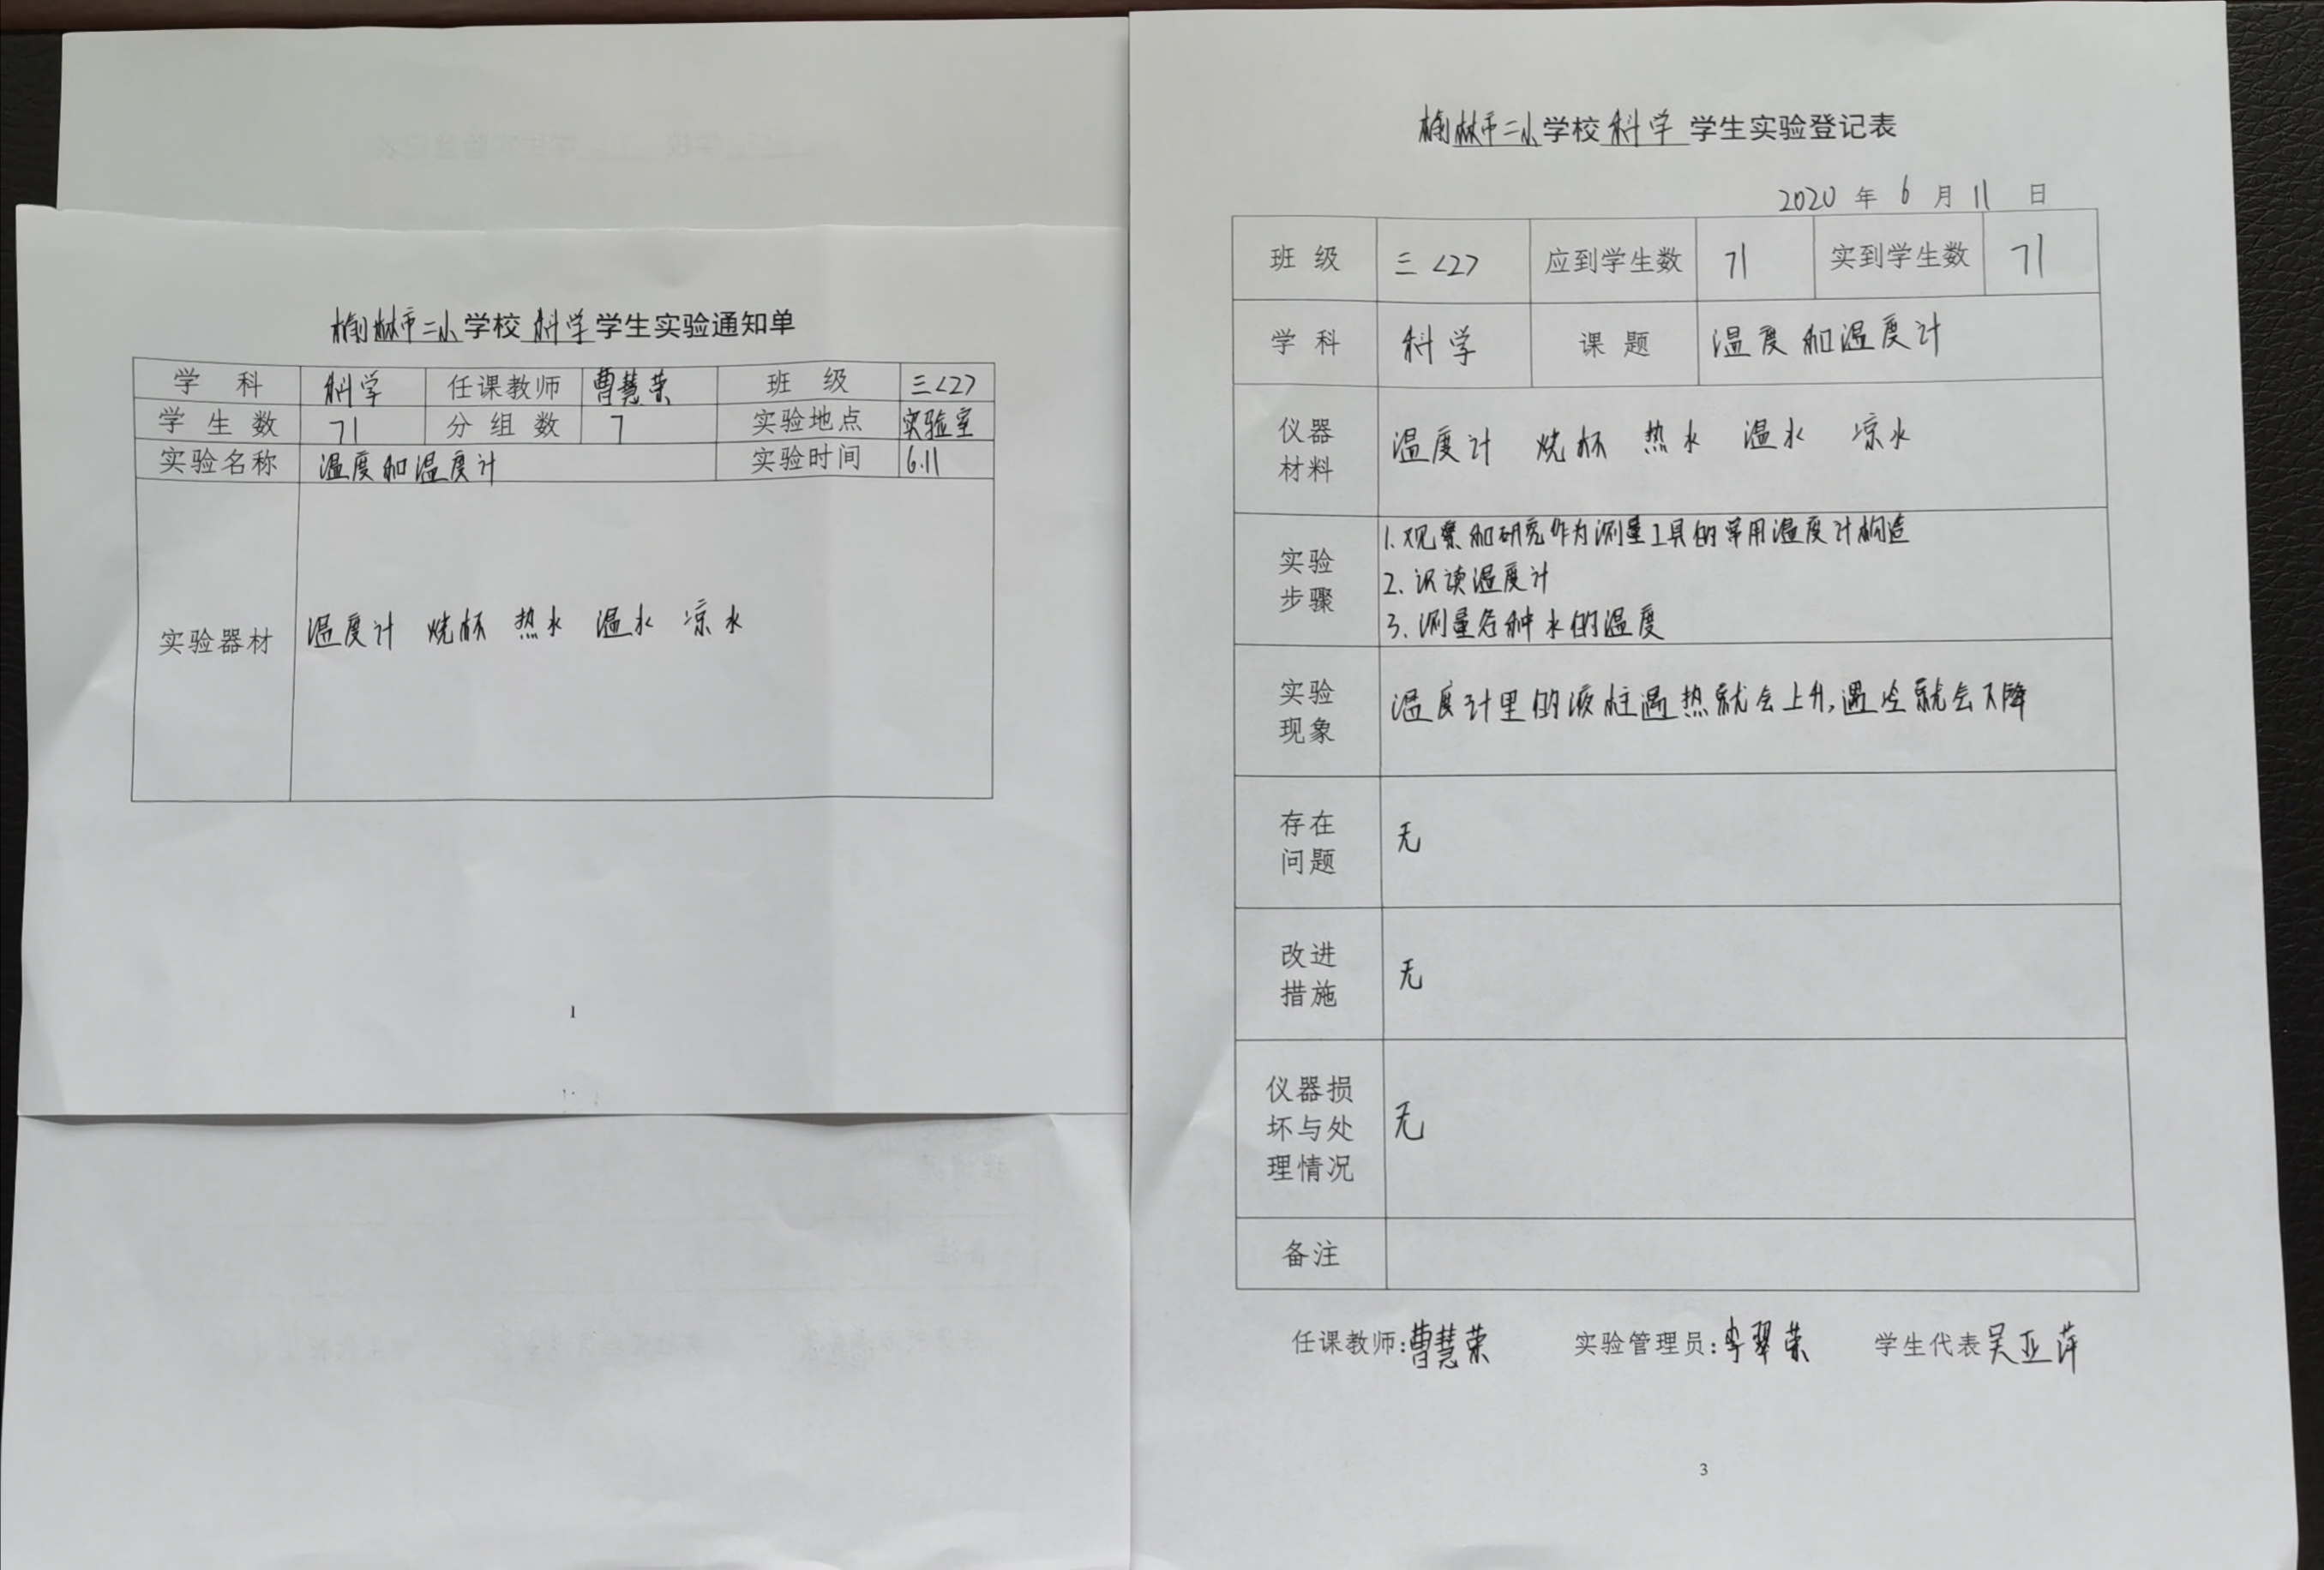 榆林市二小学校 科学 学生实验通知单
学 科 科学 任课教师 曹慧荣 班 级 三<2>
学 生 数 71 分 组 数 7 实验地点 实验室
实验名称 温度和温度计 实验时间 6.11
实验器材 温度计 烧杯 热水 温水 凉水
1
榆林市二小学校 科学 学生实验登记表
2020 年 6 月 11 日
班 级 三<2> 应到学生数 71 实到学生数 71
学 科 科学 课 题 温度和温度计
仪器
材料
温度计 烧杯 热水 温水 凉水
实验
步骤
1.观察和研究作为测量工具的常用温度计构造
2.识读温度计
3.测量各种水的温度
实验
现象
温度计里的液柱遇热就会上升,遇冷就会下降
存在
问题
无
改进
措施
无
仪器损
坏与处
理情况
无
备注
任课教师:曹慧荣 实验管理员:李翠荣 学生代表吴亚萍
3